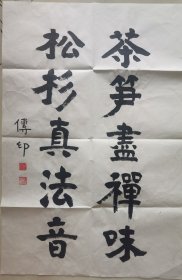 茶笋盡禪味
松杉真法音
傳印